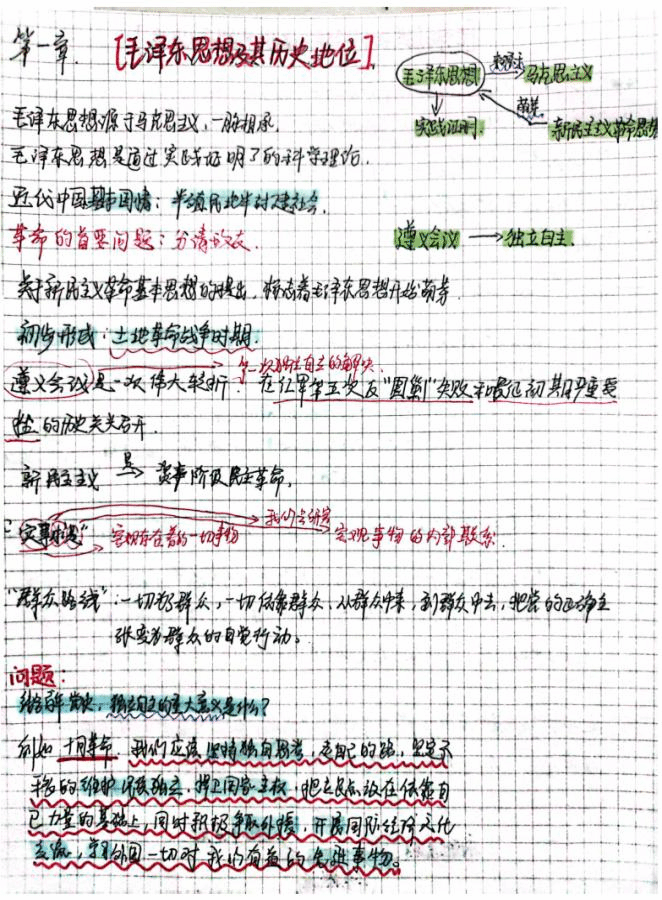 第一章. [毛泽东思想及其历史地位].
毛泽东思想 → 马克思主义
实践证明.
萌芽
新民主主义革命思想
毛泽东思想源于马克思主义,一脉相承.
毛泽东思想是通过实践证明了的科学理论.
近代中国基本国情:半殖民地半封建社会.
革命的首要问题:分清敌友.
遵义会议 → 独立自主.
关于新民主义革命基本思想的提出,标志着毛泽东思想开始萌芽.
初步形成:土地革命战争时期.
第一次独立自主的解决.
遵义会议是一次伟大转折:在红军第五次反"围剿"失败和长征初期严重受
挫的历史关头召开.
新民主主义 是→ 资产阶级民主革命.
我们去研究
"实事求是" 客观存在着的一切事物 客观事物的内部联系.
"群众路线":一切为了群众,一切依靠群众,从群众中来,到群众中去,把党的正确主
张变为群众的自觉行动。
问题:
结合百年党史,独立自主的重大意义是什么?
例如十月革命.我们应该坚持独自思考,走自己的路,坚定不
移的维护民族独立,捍卫国家主权,把立足点放在依靠自
己力量的基础上,同时积极争取外援,开展国际经济文化
交流,学习外国一切对我们有益的先进事物。